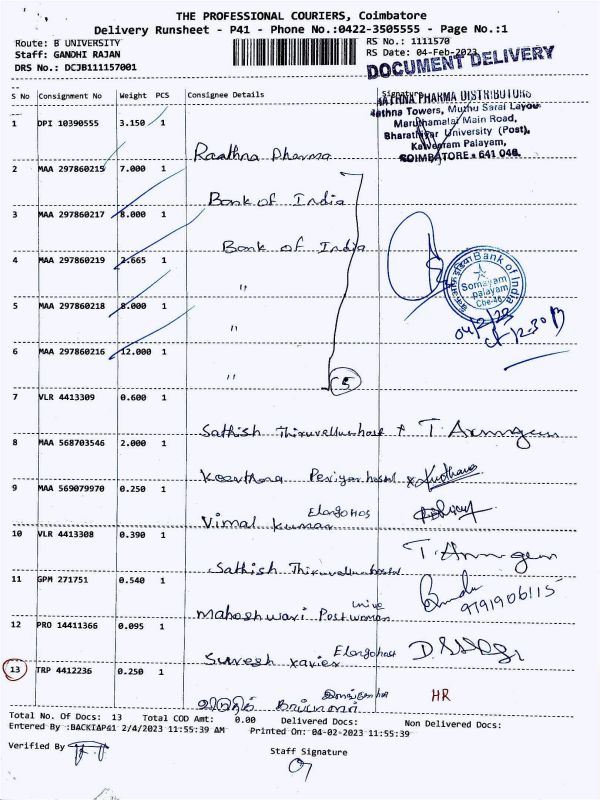 THE PROFESSIONAL COURIERS, Coimbatore
Delivery Runsheet - P41 - Phone No.:0422-3505555 - Page No.:1
Route: B UNIVERSITY RS No.: 1111570
Staff: GANDHI RAJAN RS Date: 04-Feb-2023
DRS No.: DCJB111157001
DOCUMENT DELIVERY
S No Consignment No Weight PCS Consignee Details Signature
RATHNA PHARMA DISTRIBUTORS
Rathna Towers, Muthu Sarai Layou
Marudhamalai Main Road,
Bharathiar University (Post),
Kalveeram Palayam,
COIMBATORE - 641 046.
1 DPI 10390555 3.150 1
Raathna Pharma
2 MAA 297860215 7.000 1
Bank of India
3 MAA 297860217 8.000 1
Bank of India
4 MAA 297860219 2.665 1
"
5 MAA 297860218 8.000 1
"
6 MAA 297860216 12.000 1
"
5
Bank of India
Somayam
palayam
Cbe-46
04/2/23
12.30
7 VLR 4413309 0.600 1
Sathish Thiruvelluvarhost T. Arumugam
8 MAA 568703546 2.000 1
Keerthana Periyar hostel
9 MAA 569079970 0.250 1
Vimal Kumar Elango Hos
10 VLR 4413308 0.390 1
Sathish T. Arumugam
11 GPM 271751 0.540 1
Maheshwari Postwoman unive
12 PRO 14411366 0.095 1
Suresh Xavier Elango host
13 TRP 4412236 0.250 1
HR
Total No. Of Docs: 13 Total COD Amt: 0.00 Delivered Docs: Non Delivered Docs:
Entered By :BACKIAP41 2/4/2023 11:55:39 AM Printed On: 04-02-2023 11:55:39
Verified By
Staff Signature